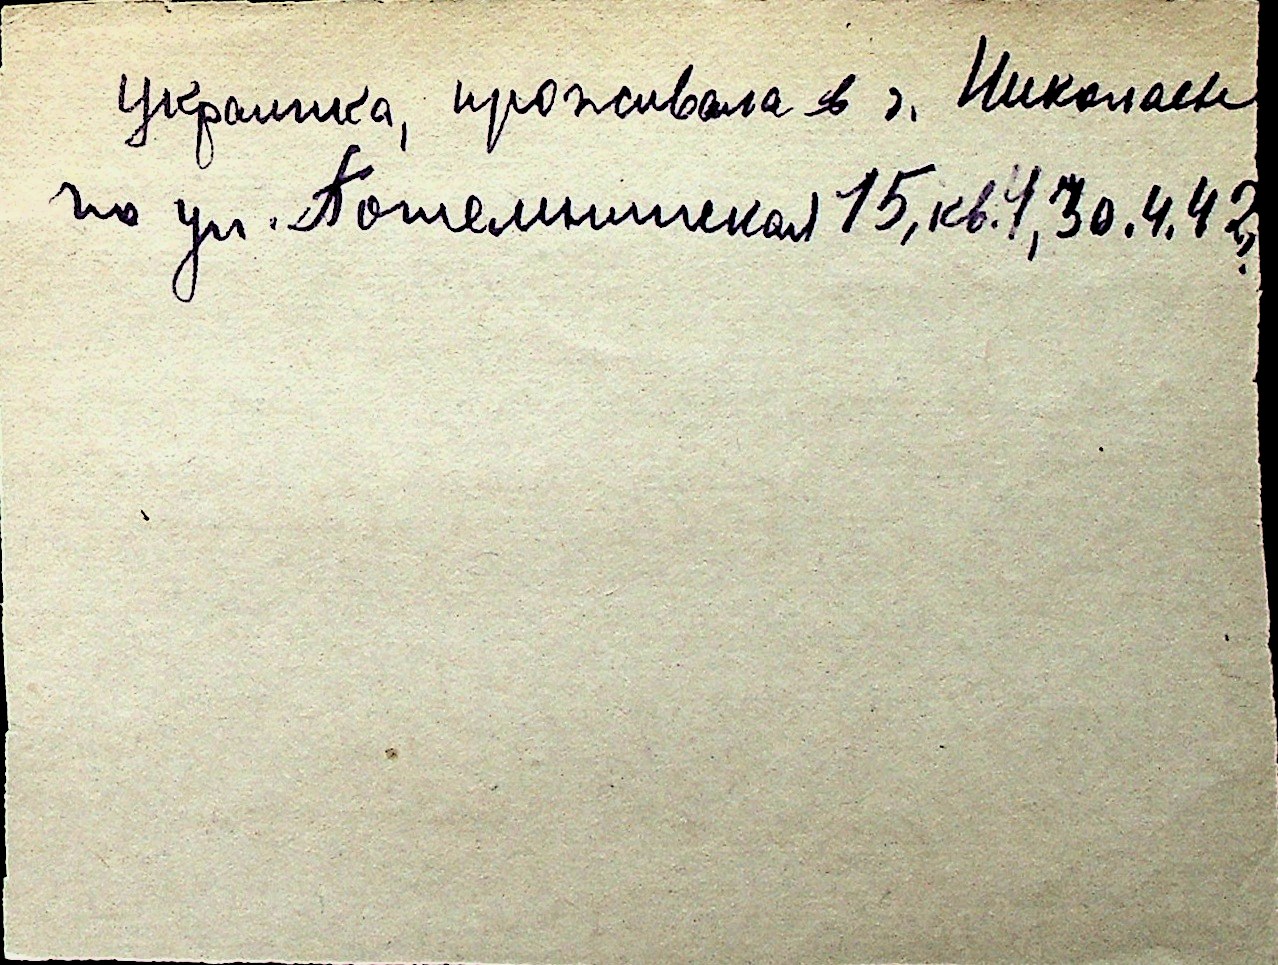 украинка, проживала в г. Николаев
по ул. Потемкинская 15, кв. 4, 30.4.42,